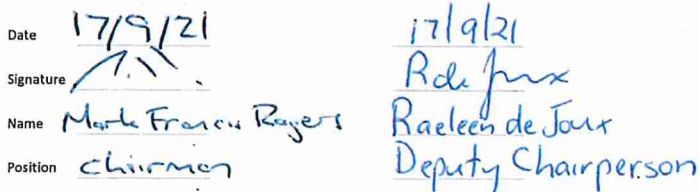 Date 17/9/21 17/9/21
Signature
Name Mark Francis Rogers Raeleen de Joux
Position Chairman Deputy Chairperson